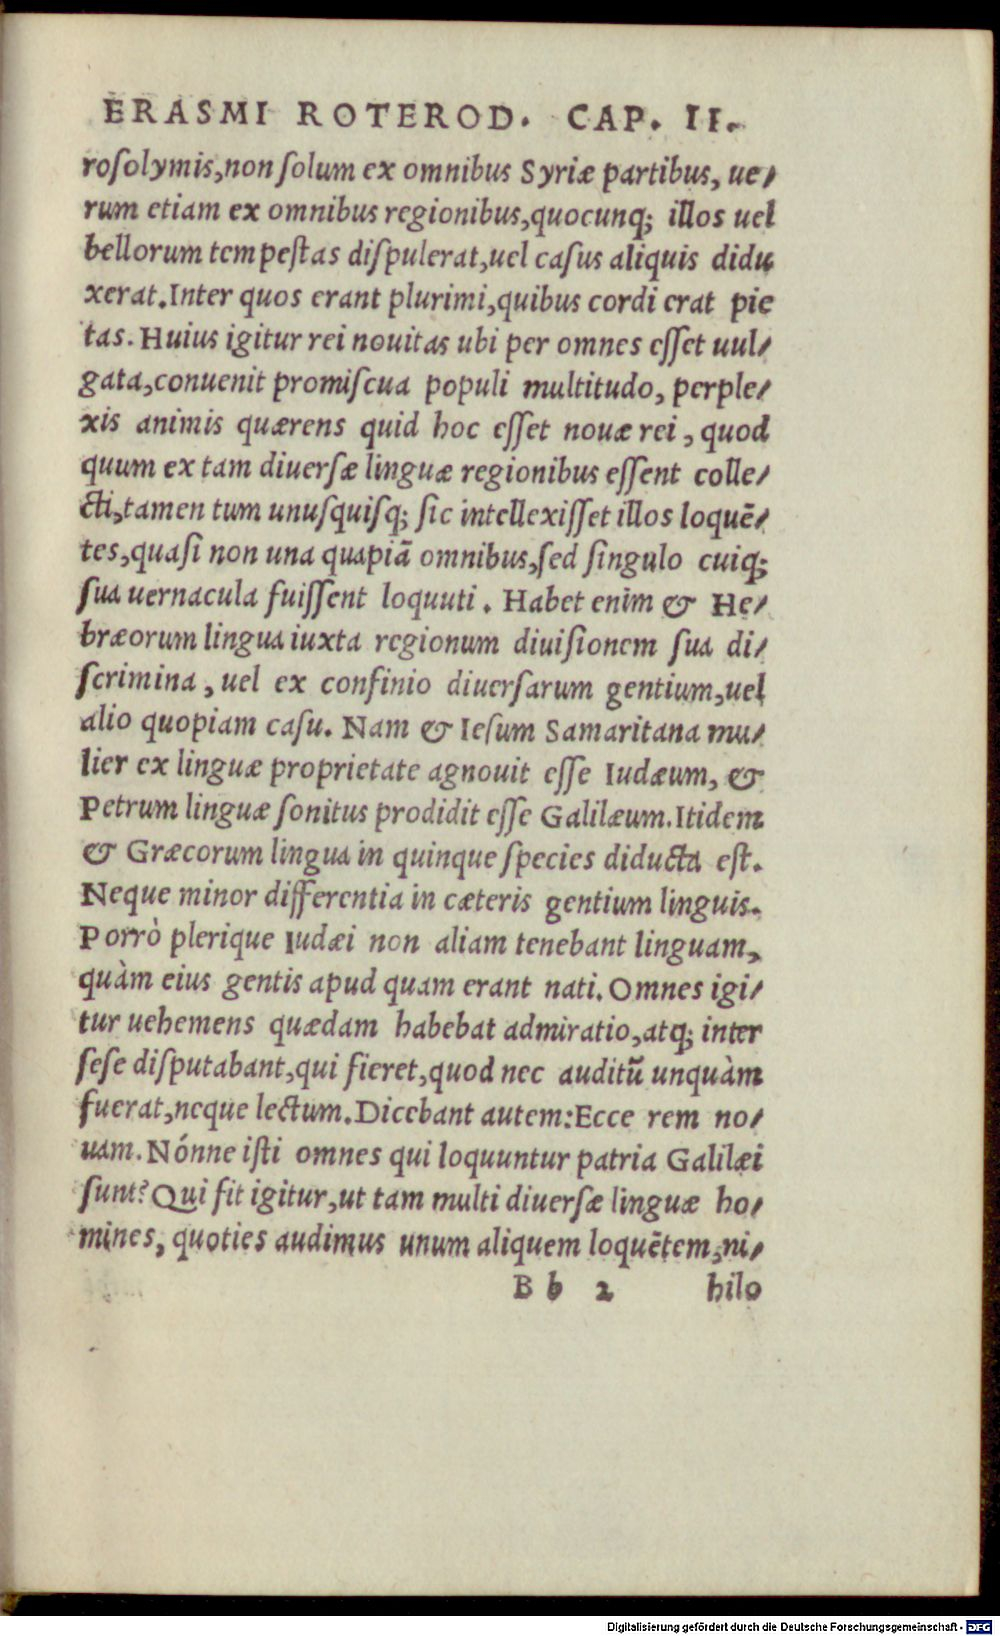 ERASMI ROTEROD. CAP. II.
roſolymis,non ſolum ex omnibus Syriæ partibus, ue⸗
rum etiam ex omnibus regionibus,quocunq; illos uel
bellorum tempeſtas diſpulerat,uel caſus aliquis didu
xerat.Inter quos erant plurimi,quibus cordi erat pie
tas. Huius igitur rei nouitas ubi per omnes eſſet uul⸗
gata,conuenit promiſcua populi multitudo, perple⸗
xis animis quærens quid hoc eſſet nouæ rei, quod
quum ex tam diuerſæ linguæ regionibus eſſent colle⸗
cti,tamen tum unuſquiſq; ſic intellexiſſet illos loquē⸗
tes,quaſi non una quapiā omnibus,ſed ſingulo cuiq;
ſua uernacula fuiſſent loquuti. Habet enim & He⸗
bræorum lingua iuxta regionum diuiſionem ſua di⸗
ſcrimina, uel ex confinio diuerſarum gentium,uel
alio quopiam caſu. Nam & Ieſum Samaritana mu⸗
lier ex linguæ proprietate agnouit eſſe Iudæum, &
Petrum linguæ ſonitus prodidit eſſe Galilæum.Itidem
& Græcorum lingua in quinque ſpecies diducta eſt.
Neque minor differentia in cæteris gentium linguis.
Porrò plerique Iudæi non aliam tenebant linguam,
quàm eius gentis apud quam erant nati. Omnes igi⸗
tur uehemens quædam habebat admiratio,atq; inter
ſeſe diſputabant,qui fieret,quod nec auditū unquàm
fuerat,neque lectum.Dicebant autem:Ecce rem no⸗
uam. Nónne iſti omnes qui loquuntur patria Galilæi
ſunt? Qui fit igitur,ut tam multi diuerſæ linguæ ho⸗
mines, quoties audimus unum aliquem loquētem,ni⸗
B b 2 hilo
Digitalisierung gefördert durch die Deutsche Forschungsgemeinschaft - DFG